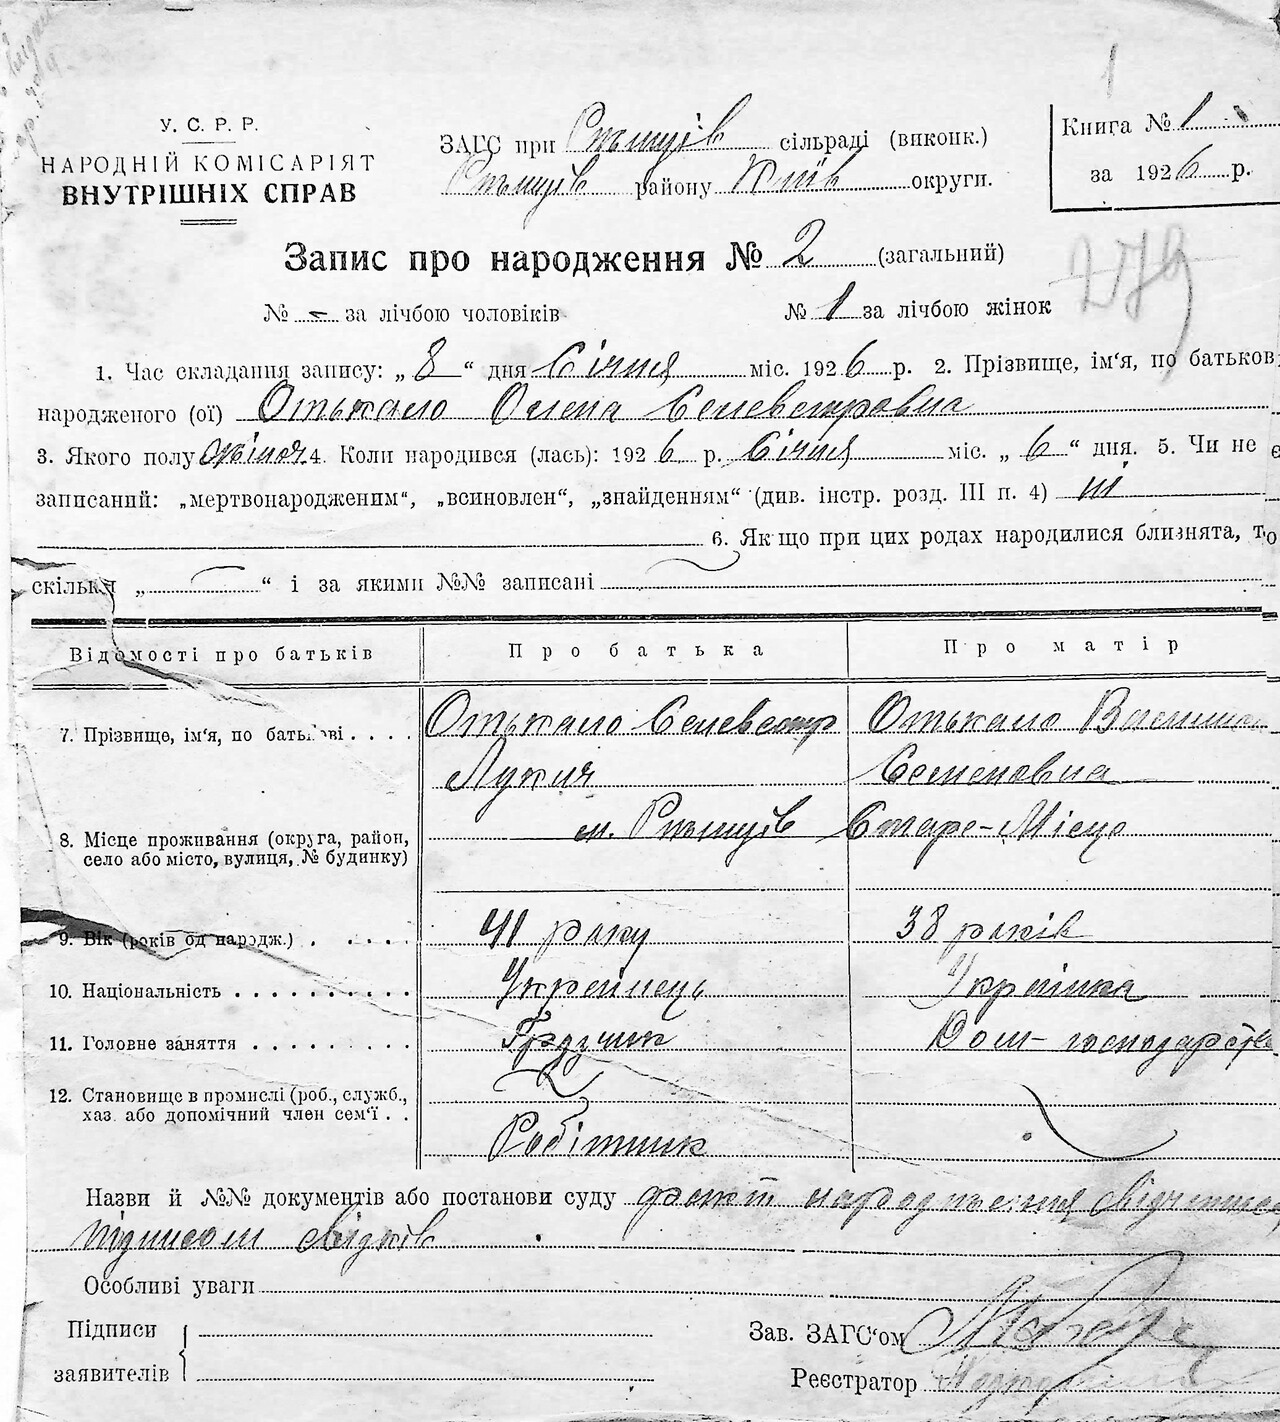 1
У. С. Р. Р.
НАРОДНІЙ КОМІСАРІЯТ
ВНУТРІШНІХ СПРАВ
ЗАГС при Ржищів сільраді (виконк.)
Ржищів району Київ округи.
Книга № 1
за 1926 р.
Запис про народження № 2 (загальний)
279
№ - за лічбою чоловіків № 1 за лічбою жінок
1. Час складання запису: „ 8 “ дня Січня міс. 1926 р. 2. Прізвище, ім‘я, по батьков
народженого (ої) Отькало Олена Селевестровна
3. Якого полу жіноч 4. Коли народився (лась): 1926 р. Січня міс. „ 6 “ дня. 5. Чи не є
записаний: „мертвонародженим“, „всиновлен“, „знайденням“ (див. інстр. розд. III п. 4) ні
6. Якщо при цих родах народилися близнята, то
скільки „ — “ і за якими №№ записані
Відомості про батьків Про батька Про матір
7. Прізвище, ім‘я, по батькові Отькало Селевестр Отькало
Лукич Семеновна
8. Місце проживання (округа, район, м. Ржищів Старе-Місце
село або місто, вулиця, № будинку)
9. Вік (років од народж.) 41 року 38 років
10. Національність Украінець Украінка
11. Головне заняття Дом-господарство
12. Становище в промислі (роб., служб.,
хаз. або допомічний член сем‘ї Робітник
Назви й №№ документів або постанови суду факт народження
підписом свідків
Особливі уваги
Підписи
заявителів
Зав. ЗАГС‘ом
Реєстратор